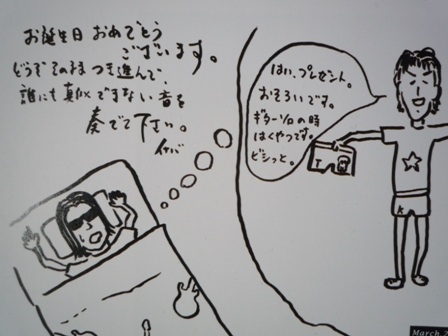 お誕生日おめでとう
ございます。
どうぞそのままつき進んで、
誰にも真似できない音を
奏でて下さい。
イナバ
はい、プレゼント。
おそろいです。
ギターソロの時
はくやつです。
ビシっと。
T
K
March.